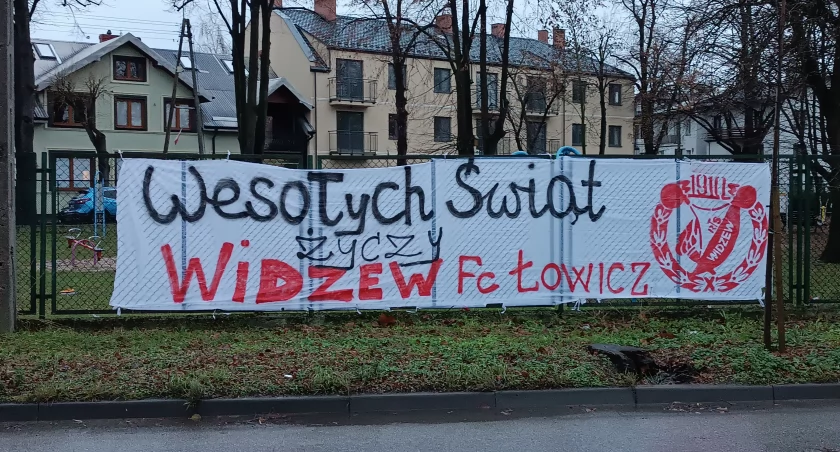 Wesołych Świąt
życzy
WiDZEW Fc ŁOWICZ
1910
RTS
WIDZEW